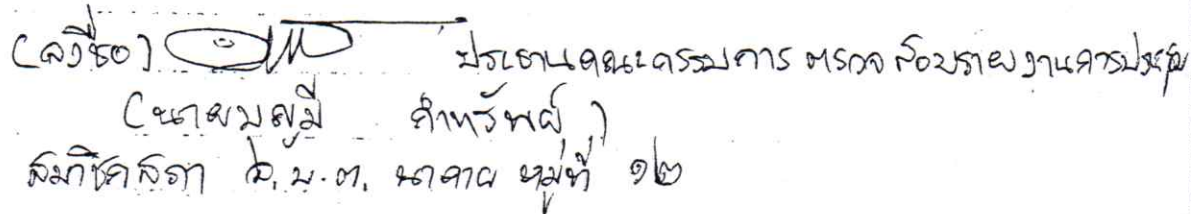 (ลงชื่อ) ประธานคณะกรรมการตรวจสอบรายงานการประชุม
(นายบุญมี คำทรัพย์)
สมาชิกสภา อ.บ.ต. นาคาย หมู่ที่ ๑๒